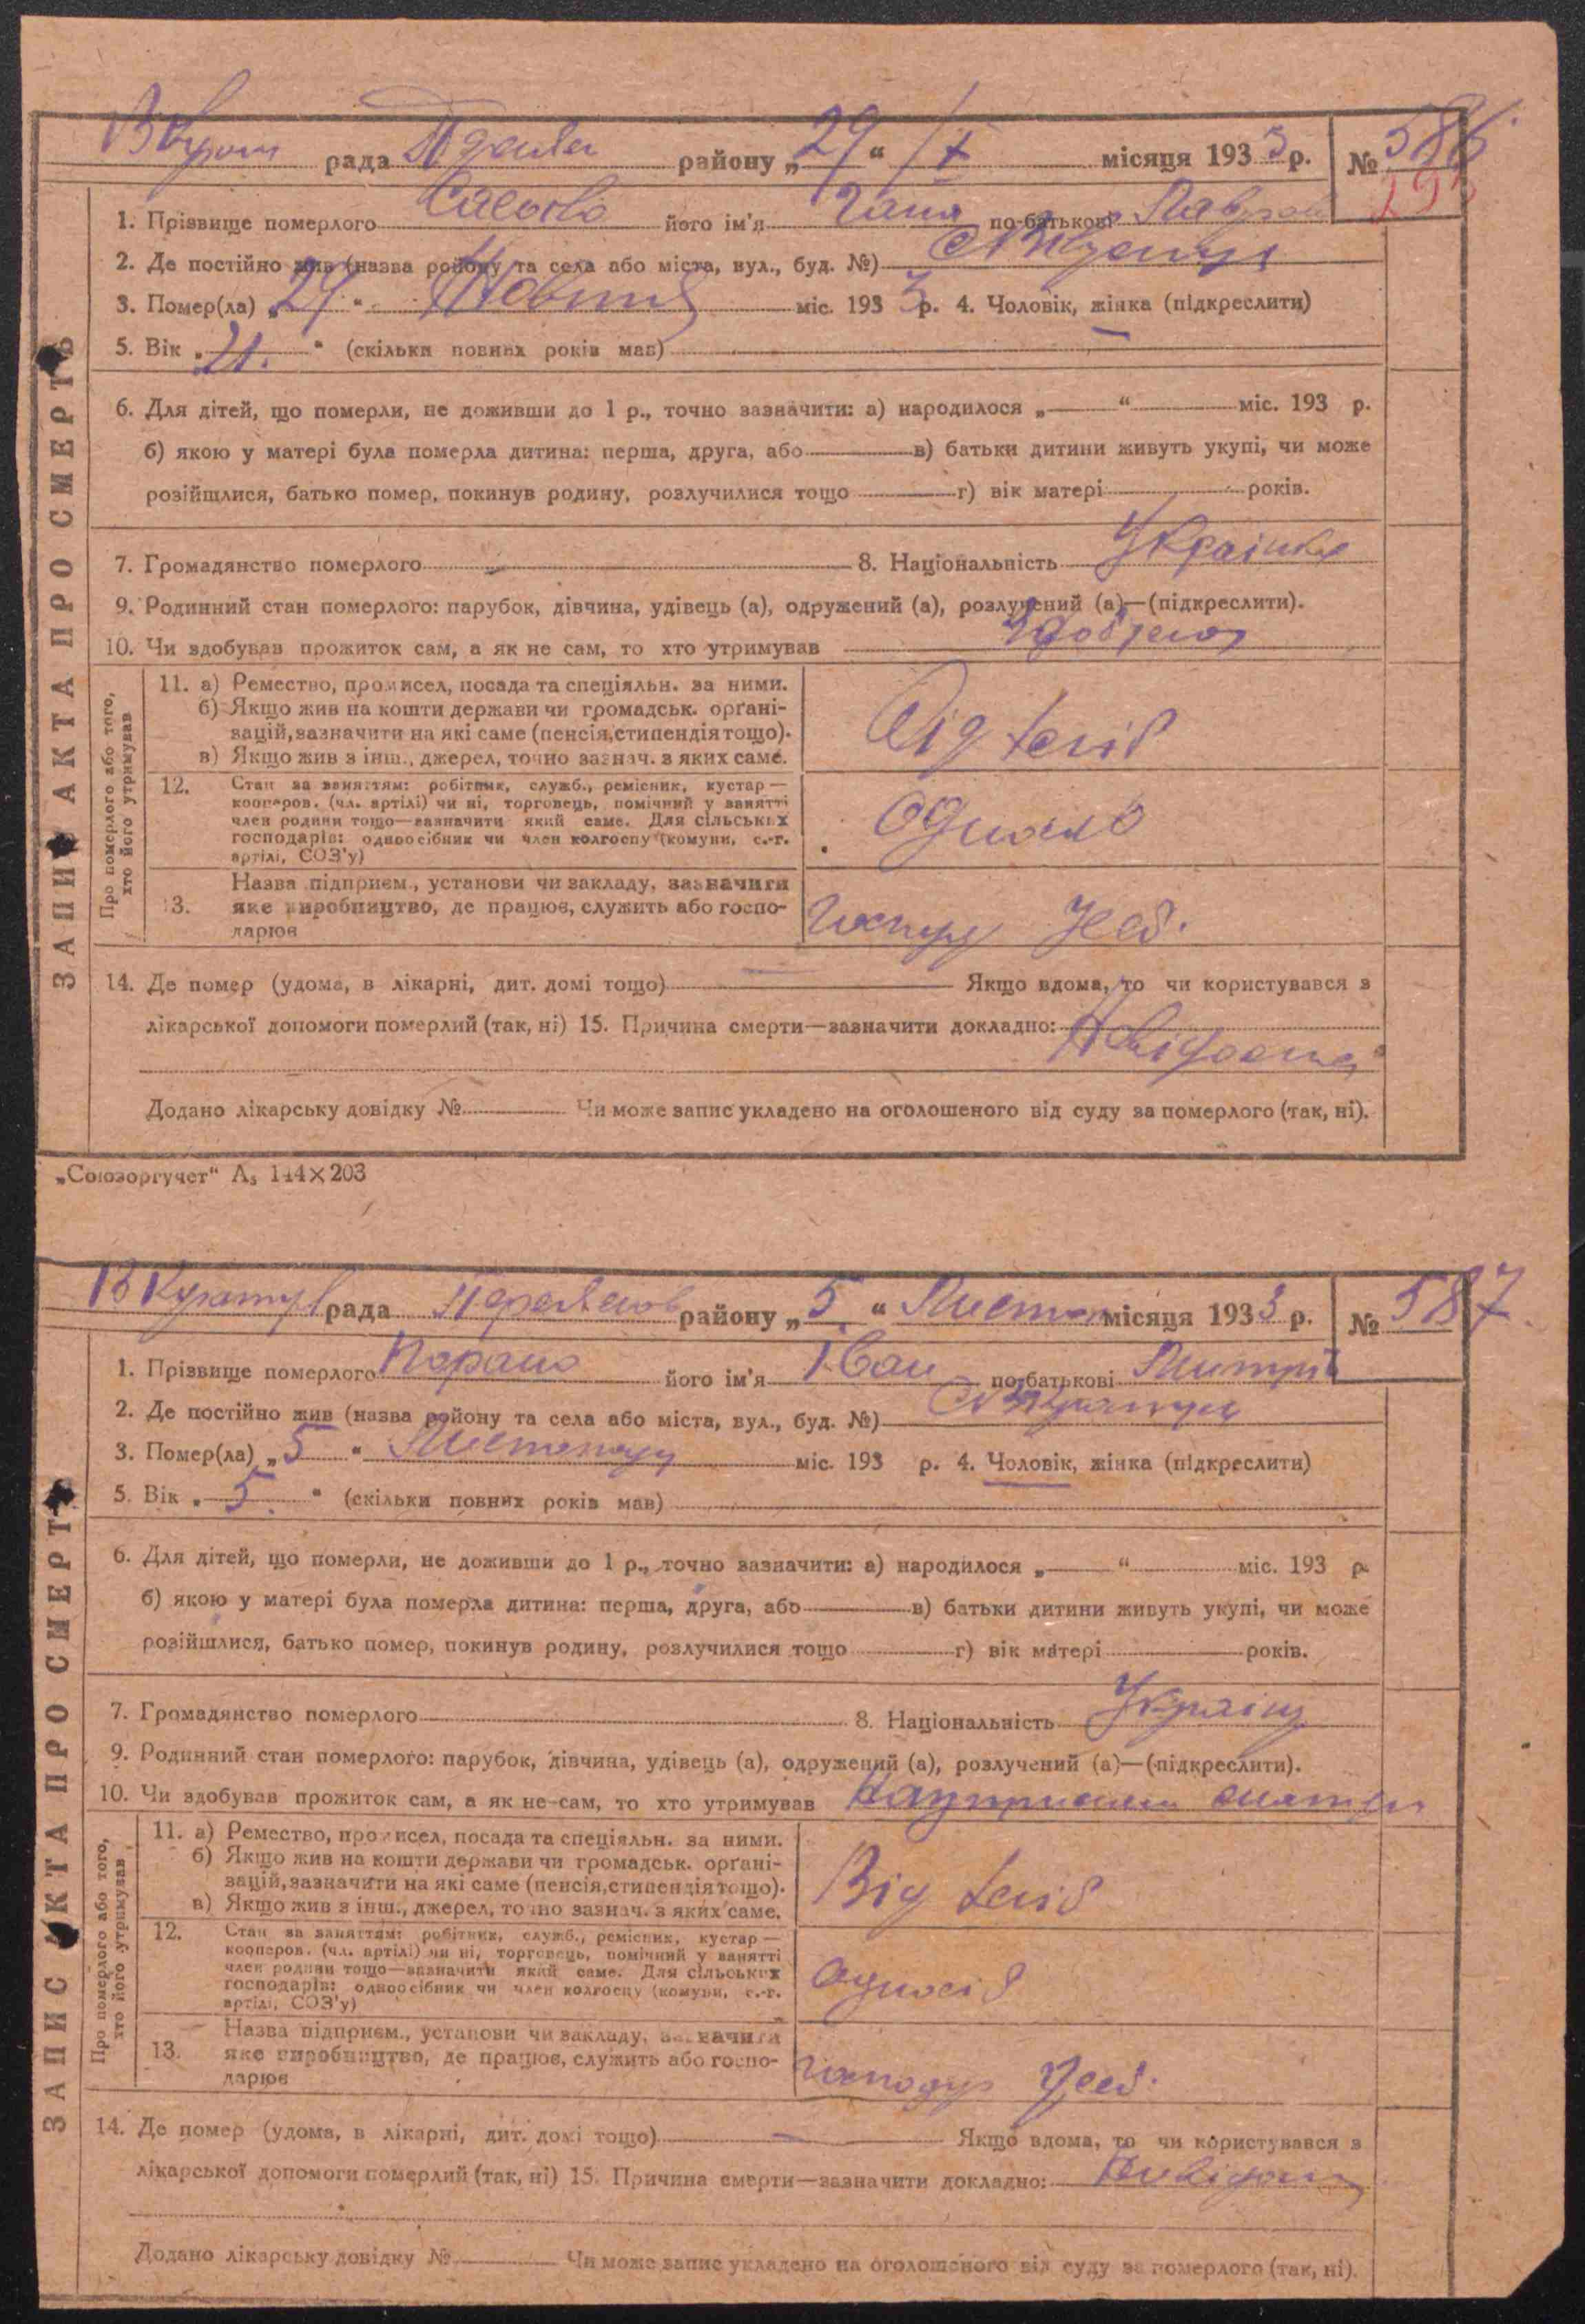 рада району „29“ /X місяця 1933 р. № 586
1. Прізвище померлого його ім'я Гапа по-батькові
2. Де постійно жив (назва району та села або міста, вул., буд. №)
3. Помер(ла) „29“ міс. 1933 р. 4. Чоловік, жінка (підкреслити)
5. Вік „21.“ (скільки повних років мав)
6. Для дітей, що померли, не доживши до 1 р., точно зазначити: а) народилося „—“ міс. 193 р.
б) якою у матері була померла дитина: перша, друга, або в) батьки дитини живуть укупі, чи може
розійшлися, батько помер, покинув родину, розлучилися тощо г) вік матері років.
7. Громадянство померлого 8. Національність Українка
9. Родинний стан померлого: парубок, дівчина, удівець (а), одружений (а), розлучений (а)—(підкреслити).
10. Чи здобував прожиток сам, а як не сам, то хто утримував
Про померлого або того, хто його утримував
11. а) Ремество, промисел, посада та спеціяльн. за ними.
б) Якщо жив на кошти держави чи громадськ. орґані-
зацій, зазначити на які саме (пенсія, стипендія тощо).
в) Якщо жив з інш., джерел, точно зазнач. з яких саме.
Від
12. Стан за заняттям: робітник, служб., ремісник, кустар—
кооперов. (чл. артілі) чи ні, торговець, помічний у занятті
член родини тощо—зазначити який саме. Для сільських
господарів: одноосібник чи член колгоспу (комуни, с.-г.
артілі, СОЗ'у)
13. Назва підприєм., установи чи закладу, зазначити
яке виробництво, де працює, служить або госпо-
дарює
14. Де помер (удома, в лікарні, дит. домі тощо) Якщо вдома, то чи користувався з
лікарської допомоги померлий (так, ні) 15. Причина смерти—зазначити докладно:
Додано лікарську довідку № Чи може запис укладено на оголошеного від суду за померлого (так, ні).
ЗАПИС АКТА ПРО СМЕРТЬ
„Союзоргучет“ А₅ 144×203
рада району „5.“ Листоп місяця 1933 р. № 587
1. Прізвище померлого його ім'я Іван по-батькові
2. Де постійно жив (назва району та села або міста, вул., буд. №)
3. Помер(ла) „5“ Листопаду міс. 193 р. 4. Чоловік, жінка (підкреслити)
5. Вік „5.“ (скільки повних років мав)
6. Для дітей, що померли, не доживши до 1 р., точно зазначити: а) народилося „—“ міс. 193 р.
б) якою у матері була померла дитина: перша, друга, або в) батьки дитини живуть укупі, чи може
розійшлися, батько помер, покинув родину, розлучилися тощо г) вік матері років.
7. Громадянство померлого 8. Національність
9. Родинний стан померлого: парубок, дівчина, удівець (а), одружений (а), розлучений (а)—(підкреслити).
10. Чи здобував прожиток сам, а як не сам, то хто утримував
Про померлого або того, хто його утримував
11. а) Ремество, промисел, посада та спеціяльн. за ними.
б) Якщо жив на кошти держави чи громадськ. орґані-
зацій, зазначити на які саме (пенсія, стипендія тощо).
в) Якщо жив з інш., джерел, точно зазнач. з яких саме.
Від
12. Стан за заняттям: робітник, служб., ремісник, кустар—
кооперов. (чл. артілі) чи ні, торговець, помічний у занятті
член родини тощо—зазначити який саме. Для сільських
господарів: одноосібник чи член колгоспу (комуни, с.-г.
артілі, СОЗ'у)
13. Назва підприєм., установи чи закладу, зазначити
яке виробництво, де працює, служить або госпо-
дарює
14. Де помер (удома, в лікарні, дит. домі тощо) Якщо вдома, то чи користувався з
лікарської допомоги померлий (так, ні) 15. Причина смерти—зазначити докладно:
Додано лікарську довідку № Чи може запис укладено на оголошеного від суду за померлого (так, ні).
ЗАПИС АКТА ПРО СМЕРТЬ